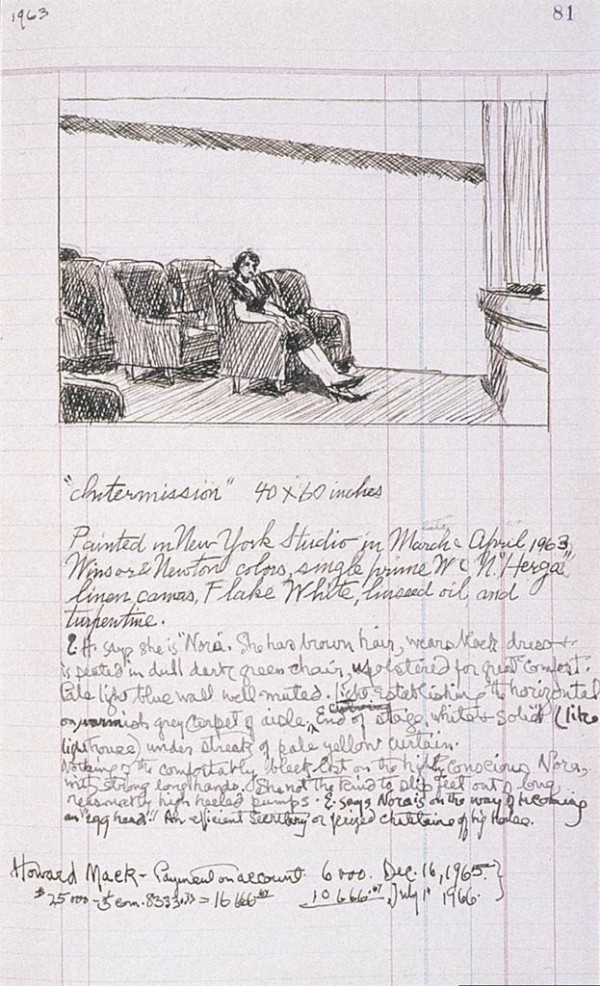 1963
81
"Intermission" 40 x 60 inches
Painted in New York Studio in March & April 1963,
Winsor & Newton colors, single prime W & N. "Herga"
linen canvas, Flake White, linseed oil and
turpentine.
E.H. says she is "Nora". She has brown hair, wears black dress &
is seated in dull dark green chair, upolstered for great comfort.
Pale light blue wall well muted. light establishing the horizontal
on warmish grey carpet of aisle. End of stage, white & solid (like
lighthouse) under streak of pale yellow curtain.
Nothing of the comfortably on the high conscious Nora,
with strong long hands. She not the kind to slip feet out of long
reasonably high heeled pumps. E. says Nora is on the way of becoming
an "egg head". An efficient secretary or prized chatelaine of big house.
Howard Mack - Payment on account 6000. Dec. 16, 1965.
$25000 - ⅓ com. 8333.33 = 16666.67 10666.67 July 1 1966.